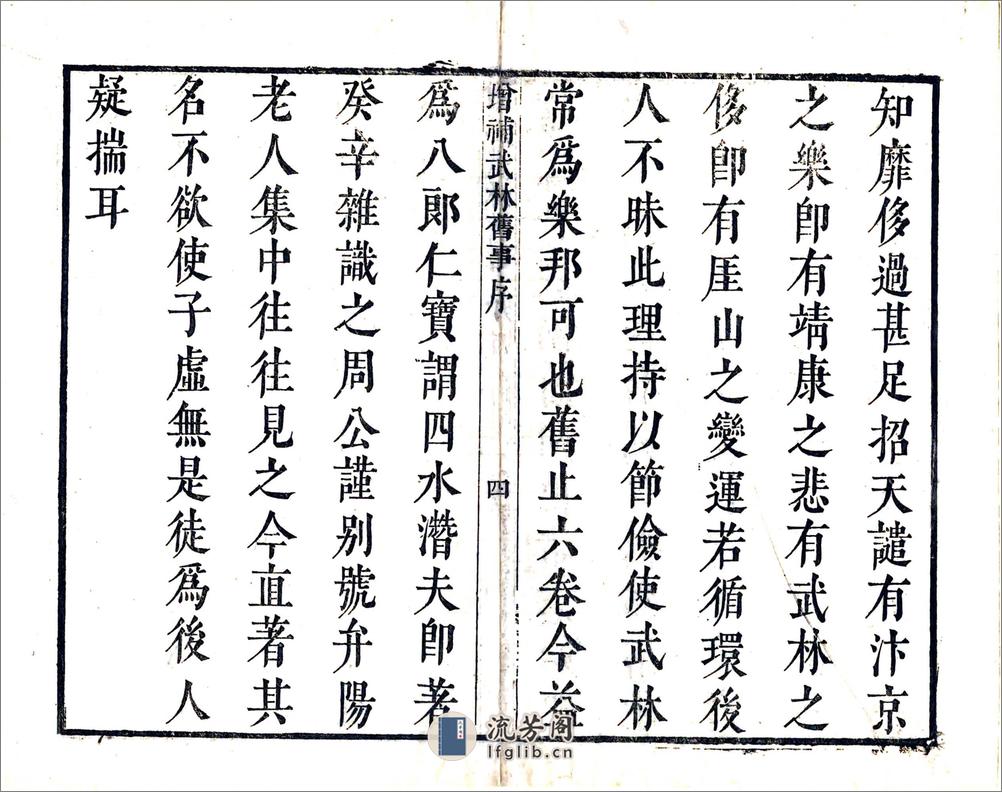 知靡侈過甚足招天譴有汴京
之樂卽有靖康之悲有武林之
侈卽有厓山之變運若循環後
人不昧此理持以節儉使武林
常爲樂邦可也舊止六卷今益
增補武林舊事序
四
爲八郎仁寶謂四水潛夫卽著
癸辛雜識之周公謹别號弁陽
老人集中往往見之今直著其
名不欲使子虛無是徒爲後人
疑揣耳
流芳阁
lfglib.cn